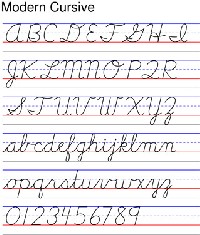 Modern Cursive
ABCDEFGHI
JKLMNOPQR
STUVWXYZ
abcdefghijklmn
opqrstuvwxyz
0123456789